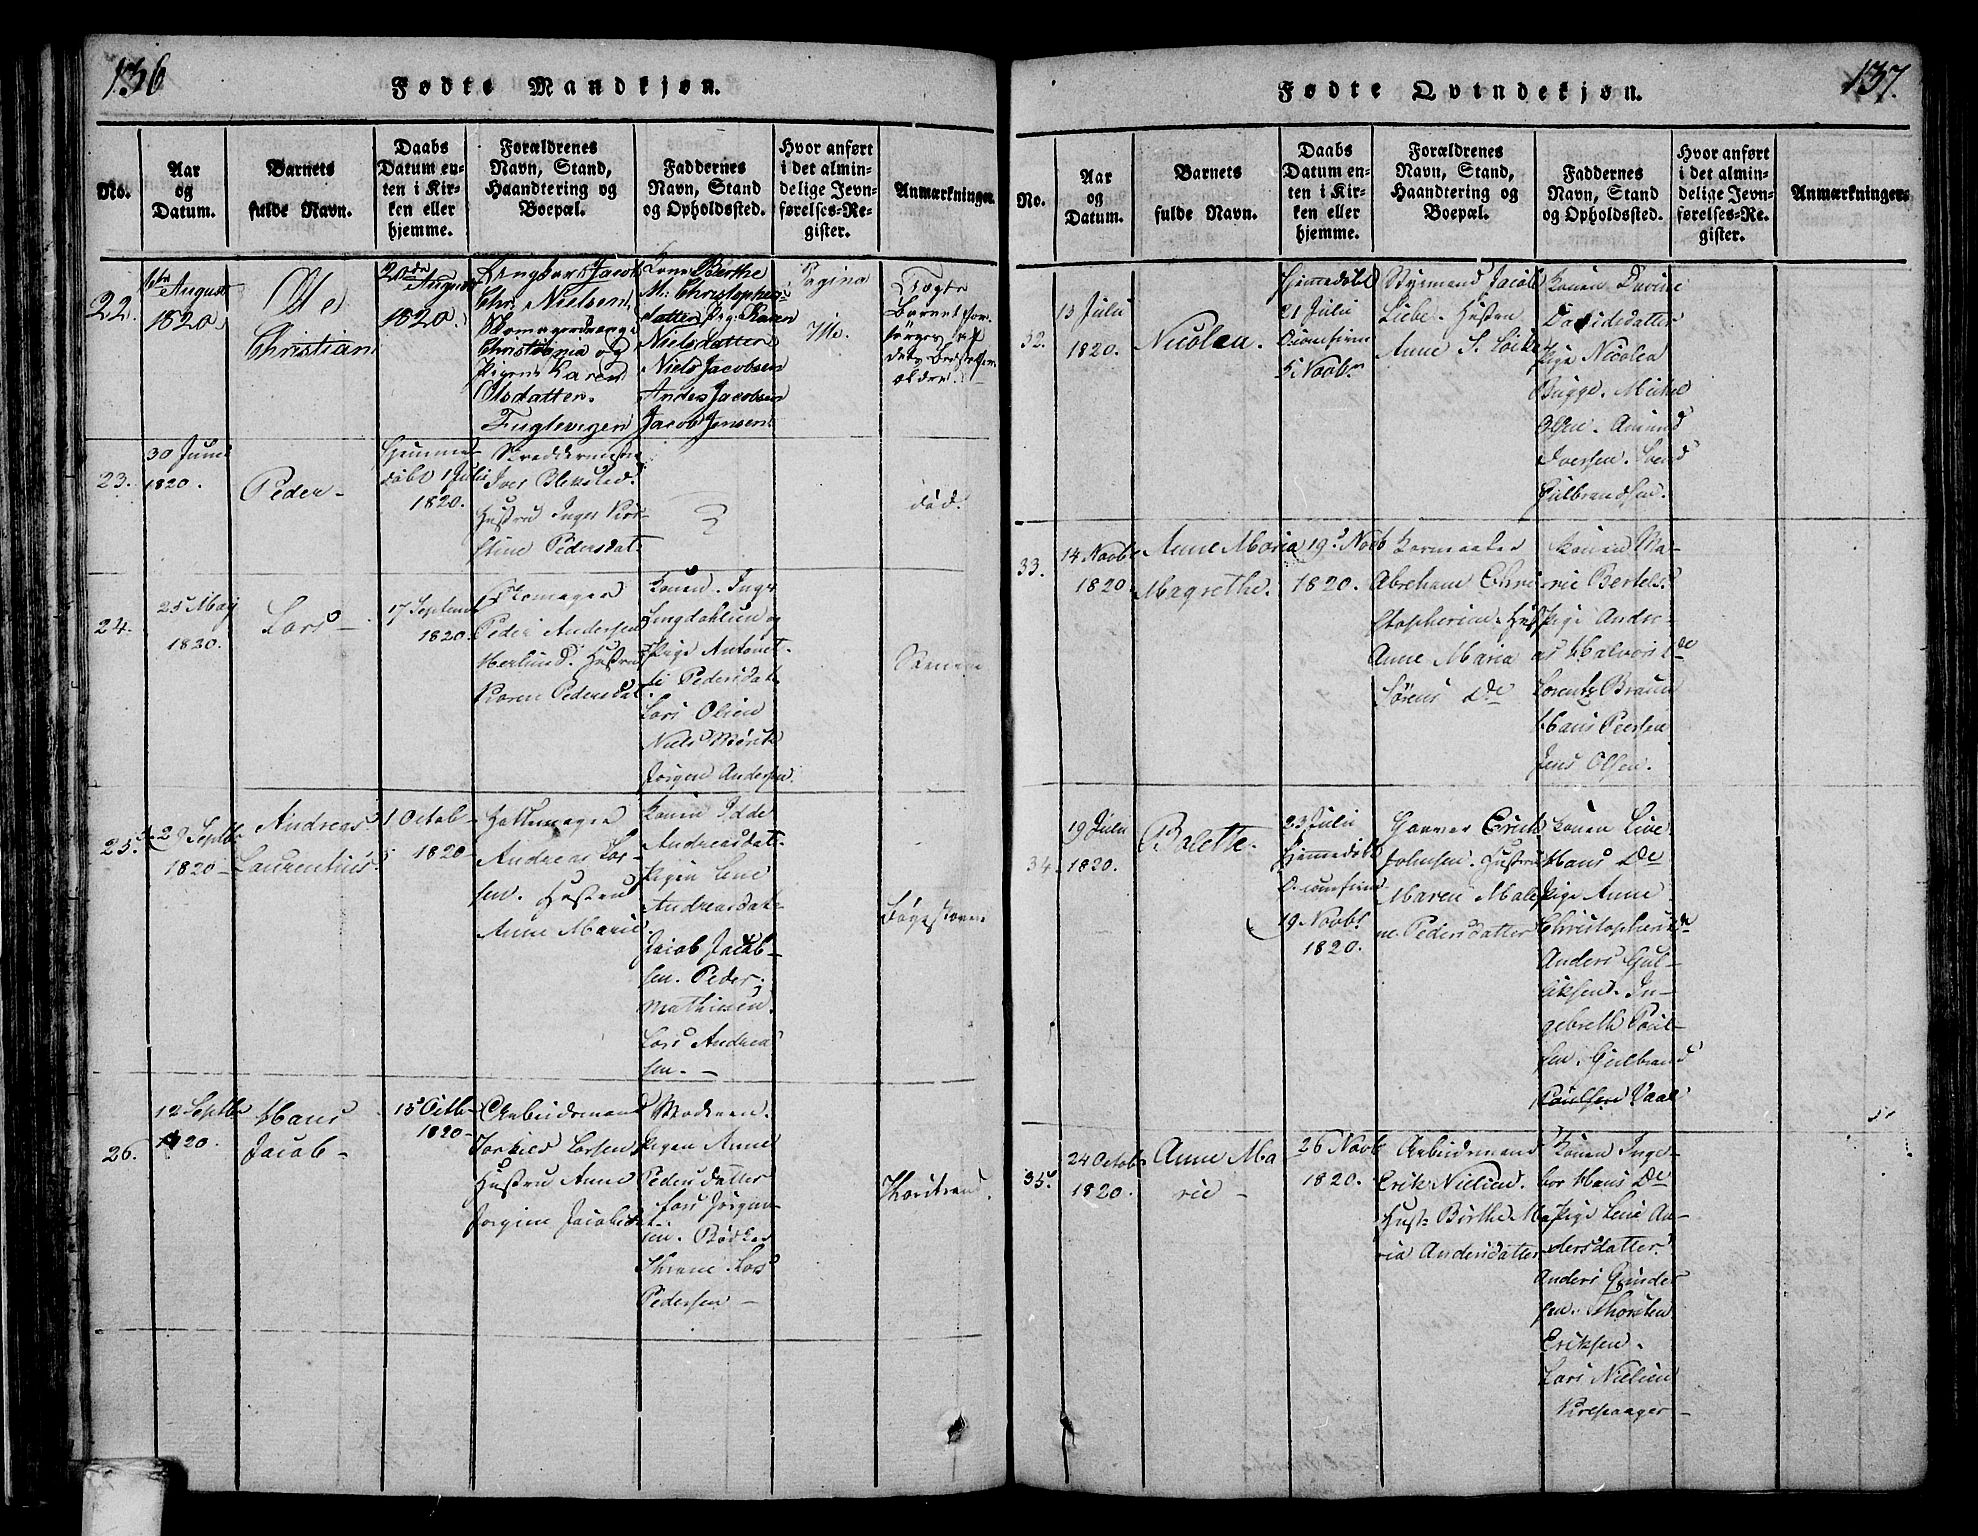 136
Fødte Mandkjøn.
No.
Aar
og
Datum.
Barnets
fulde Navn.
Daabs
Datum en-
ten i Kir-
ken eller
hjemme.
Forældrenes
Navn, Stand,
Haandtering og
Boepæl.
Faddernes
Navn, Stand
og Opholdssted.
Hvor anført
i det almin-
delige Jevn-
førelses-Re-
gister.
Anmærkninger
22.
August
1820
Ole
Christian
20de
August
1820.
Ungkarl Jacob
Chr. Nielsen
Skomagerdrenge
Christiania og
Pigen Karen
Olsdatter.
Fuglevigen
Kone Berthe
M: Christophers-
datter Pig. Karen
Nielsdatter
Niels Jacobsen
Anders Jacobsen
Jacob Jensen
Pagina
Barnet for-
ældre.
23.
30 Juni
1820.
Peder
Hjemme-
døbt 1 Julii
1820.
Skreddermester
Iver Blekstad.
Hustru Inger Kir-
stine Pedersdat
død.
24.
25 May
1820.
Lars
17 Septemb
1820.
Skomager
Peder Andersen
Herlund. Hustru
Karen Pedersdat.
Konen. Inger
Lingdahlien og
Pige Antonet-
te Pedersdat.
Lars Olsen
Niels Mørch
Jørgen Andersen.
25.
29 Septbr
1820
Andreas
Laurentius.
1 Octob
1820
Hattemager
Andreas Lar-
sen. Hustru
Anne Marie
Konen Edde
Andreasdat-
Pigen Lene
Andreasdat.
Jacob Jacob-
sen. Peder
Mathiesen.
Lars Andrea
sen.
26.
12 Septbr
1820.
Hans
Jacob
15 Octb
1820
Arbeidsmand
Larsen
Hustru Anne
Jorgine Jacobsd.
Moderen.
Pigen Anne
Pedersdatter
Lars Jørgen-
sen. Bødker
Thrane. Lars
Pedersen
137.
Fødte Qvindekjøn.
No.
Aar
og
Datum.
Barnets
fulde Navn.
Daabs
Datum en-
ten i Kir-
ken eller
hjemme.
Forældrenes
Navn, Stand,
Haandtering og
Boepæl.
Faddernes
Navn, Stand
og Opholdssted.
Hvor anført
i det almin-
delige Jevn-
førelses-Re-
gister.
Anmærkninger
32.
13 Julii
1820.
Nicolea.
Hjemmedøbt
21 Julii
5 Novbr
Styrmand Jacob
Liebe. Hustru
Anne S. Løcke
Konen Davine
Davidsdatter
Pige Nicolea
Bugge. Michel
Olsen. Amund
Iversen. Svend
Gulbrandsen.
33.
14 Novbr
1820
Anne Maria
Magrethe.
19 Novb
1820.
Kornmaaler
Abraham Chri
stophersen. Hust
Anne Maria
Sørens De
Konen Ma-
rie Bertels.
Pige Andre-
as Halvors De
Lorentz Braun
Hans Peersen
Jens Olsen.
34.
19 Julii
1820.
Bolette.
23 Julii
Hjemmedøbt
19 Novbr
1820.
Garver Erich
Johnsen. Hustru
Maren Male-
ne Pedersdatter
Konen Live
Hans De
Pige Anne
Christophers De
Anders Gul-
liksen. In-
gebreth Poul-
sen. Gulbrand
Poulsen Vaal
35.
24 Octob
1820.
Anne Ma
rie
26 Novb
1820.
Arbeidsmand
Erik Nielsen.
Hust. Birthe Ma
ria Andersdatter
Konen Inge-
bor Hans De
Pige Lene An-
dersdatter.
Anders Gunder
sen. Thorsten
Eriksen.
Lars Nielsen
Krepaager